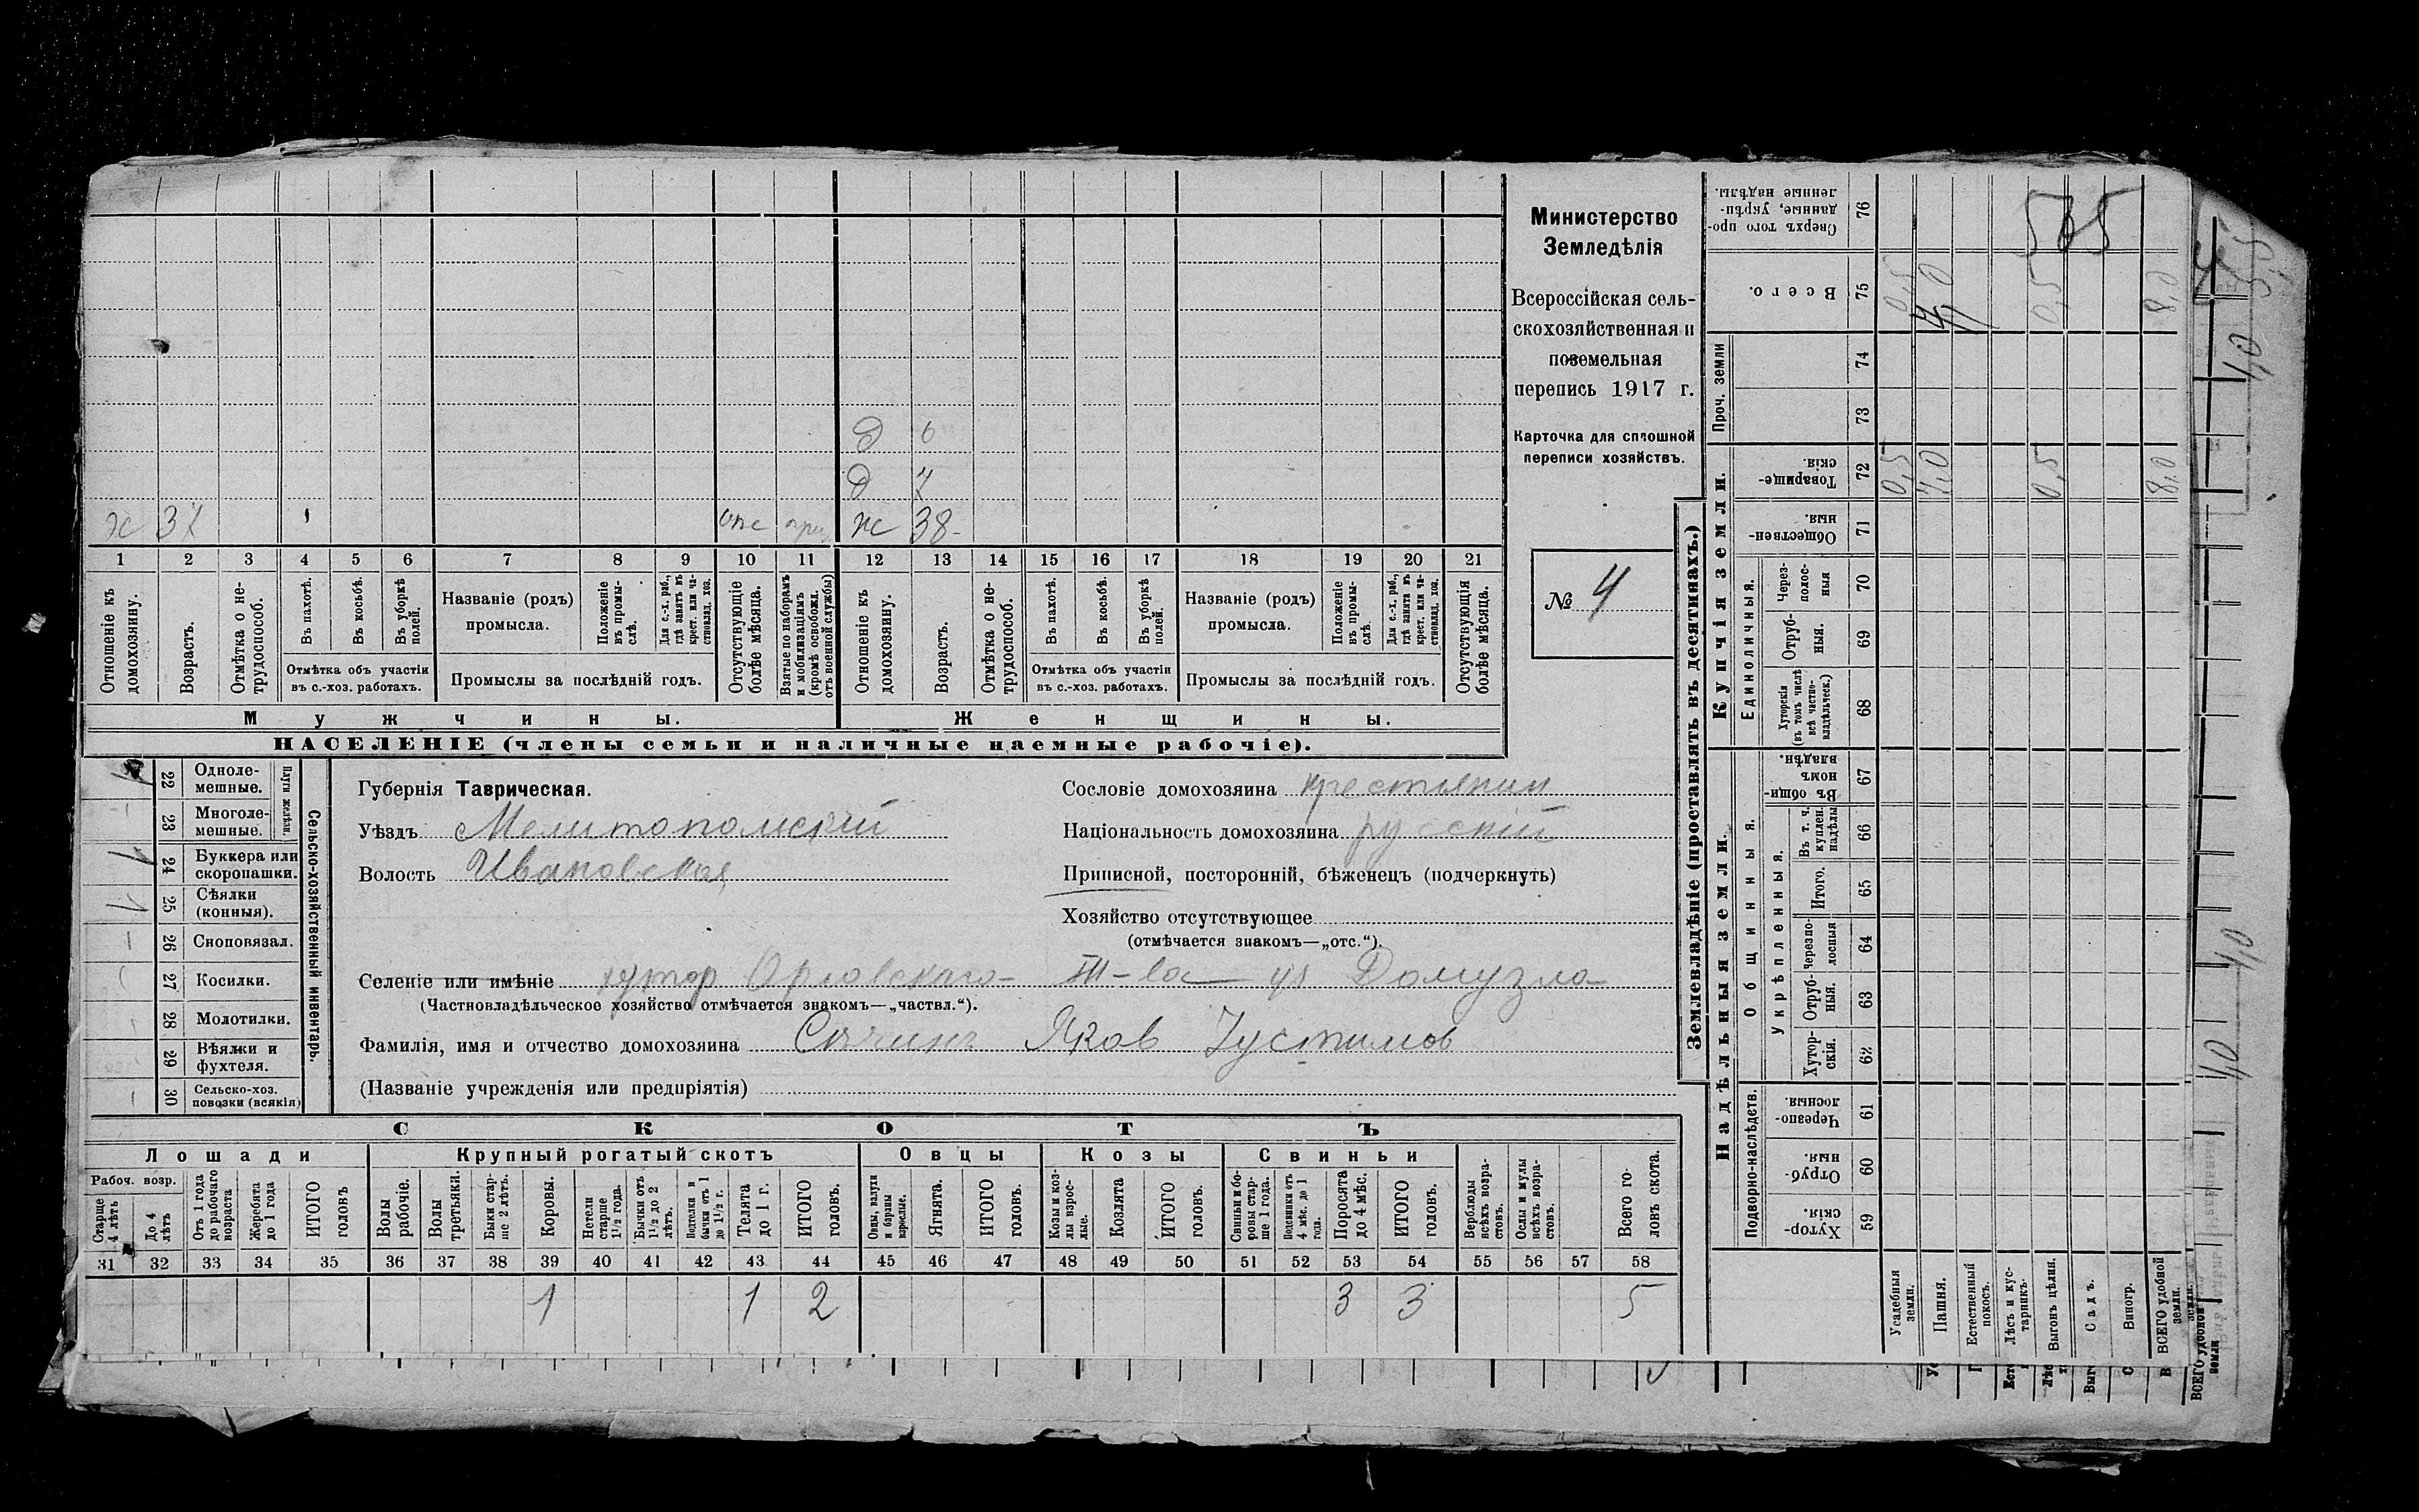 д 6
д 7
х 37 1 отс ж 38
1 2 3 4 5 6 7 8 9 10 11 12 13 14 15 16 17 18 19 20 21
Отношеніе къ домохозяину.
Возрастъ.
Отмѣтка о не-
трудоспособ.
Въ пахотѣ.
Въ косьбѣ.
Въ уборкѣ полей.
Отмѣтка объ участіи
въ с.-хоз. работахъ.
Названіе (родъ)
промысла.
Положеніе въ промы-
слѣ.
Для с.-х. раб., гдѣ занятъ въ крест. или ча-
стновлад. хоз.
Промыслы за послѣдній годъ.
Отсутствующіе болѣе мѣсяца.
Взятые по наборамъ и мобилизаціямъ (кромѣ освобожд. отъ военной службы)
Отношеніе къ домохозяину.
Возрастъ.
Отмѣтка о не-
трудоспособ.
Въ пахотѣ.
Въ косьбѣ.
Въ уборкѣ полей.
Отмѣтка объ участіи
въ с.-хоз. работахъ.
Названіе (родъ)
промысла.
Положеніе въ промы-
слѣ.
Для с.-х. раб., гдѣ занята въ крест. или ча-
стновлад. хоз.
Промыслы за послѣдній годъ.
Отсутствующія болѣе мѣсяца.
Мужчины.
Женщины.
НАСЕЛЕНІЕ (члены семьи и наличные наемные рабочіе).
Министерство
Земледѣлія
Всероссійская сель-
скохозяйственная и
поземельная
перепись 1917 г.
Карточка для сплошной
переписи хозяйствъ.
№ 4
22 Одноле-
мешные.
23 Многоле-
мешные.
Плуги желѣзн.
24 Буккера или
скоропашки.
25 Сѣялки
(конныя).
26 Сноповязал.
27 Косилки.
28 Молотилки.
29 Вѣялки и
фухтеля.
30 Сельско-хоз.
повозки (всякія)
Сельско-хозяйственный инвентарь.
Губернія Таврическая.
Уѣздъ Мелитопольскій
Волость Ивановская
Сословіе домохозяина крестьянин
Національность домохозяина русскій
Приписной, посторонній, бѣженецъ (подчеркнуть)
Хозяйство отсутствующее
(отмѣчается знакомъ—„отс.“).
Селеніе или имѣніе хутор Орловскаго III-ва
(Частновладѣльческое хозяйство отмѣчается знакомъ—„частвл.“).
Фамилія, имя и отчество домохозяина Яков Іустимов
(Названіе учрежденія или предпріятія)
СКОТЪ
Лошади
Крупный рогатый скотъ
Овцы
Козы
Свиньи
Рабоч. возр.
Старше 4 лѣтъ
До 4 лѣтъ
Отъ 1 года до рабочаго возраста
Жеребята до 1 года
ИТОГО головъ
Волы рабочіе.
Волы третьяки.
Быки стар-
ше 2 лѣтъ.
Коровы.
Нетели старше 1½ года.
Бычки отъ 1½ до 2 лѣтъ.
Подтелки и бычки отъ 1 до 1½ г.
Телята до 1 г.
ИТОГО головъ.
Овцы, валухи и бараны взрослые.
Ягнята.
ИТОГО головъ.
Козы и коз-
лы взрос-
лые.
Козлята
ИТОГО головъ.
Свиньи и бо-
ровы стар-
ше 1 года.
Подсвинки отъ 4 мѣс. до 1 года.
Поросята до 4 мѣс.
ИТОГО головъ.
Верблюды всѣхъ возра-
стовъ.
Ослы и мулы всѣхъ возра-
стовъ.
Всего го-
ловъ скота.
31 32 33 34 35 36 37 38 39 40 41 42 43 44 45 46 47 48 49 50 51 52 53 54 55 56 57 58
1 1 2 3 3 5
Землевладѣніе (проставлять въ десятинахъ.)
Надѣльныя земли.
Купчія земли.
Проч. земли
Подворно-наслѣдств.
Общинныя.
Укрѣпленныя.
Единоличныя.
Хутор-
скія. 59
Отруб-
ныя. 60
Черезпо-
лосныя. 61
Хутор-
скія. 62
Отруб-
ныя. 63
Черезпо-
лосныя 64
Итого. 65
Въ т. ч. куплен. надѣлы 66
Въ общи-
номъ владѣн. 67
Хуторскія (въ томъ числѣ всѣ частно-
владѣльческ.) 68
Отруб-
ныя. 69
Через-
полос-
ныя 70
Обществен-
ныя. 71
Товарище-
скія. 72
73
74
Всего. 75
Сверхъ того про-
данные, укрѣп-
ленные надѣлы. 76
Усадебныя земли. 0,5 0,5
Пашня.
Естественный покосъ.
Лѣсъ и кус-
тарникъ.
Выгонъ цѣлин. 0,5 0,5
Садъ.
Виногр.
ВСЕГО удобной земли. 8,0 8,0
ВСЕГО удобной земли